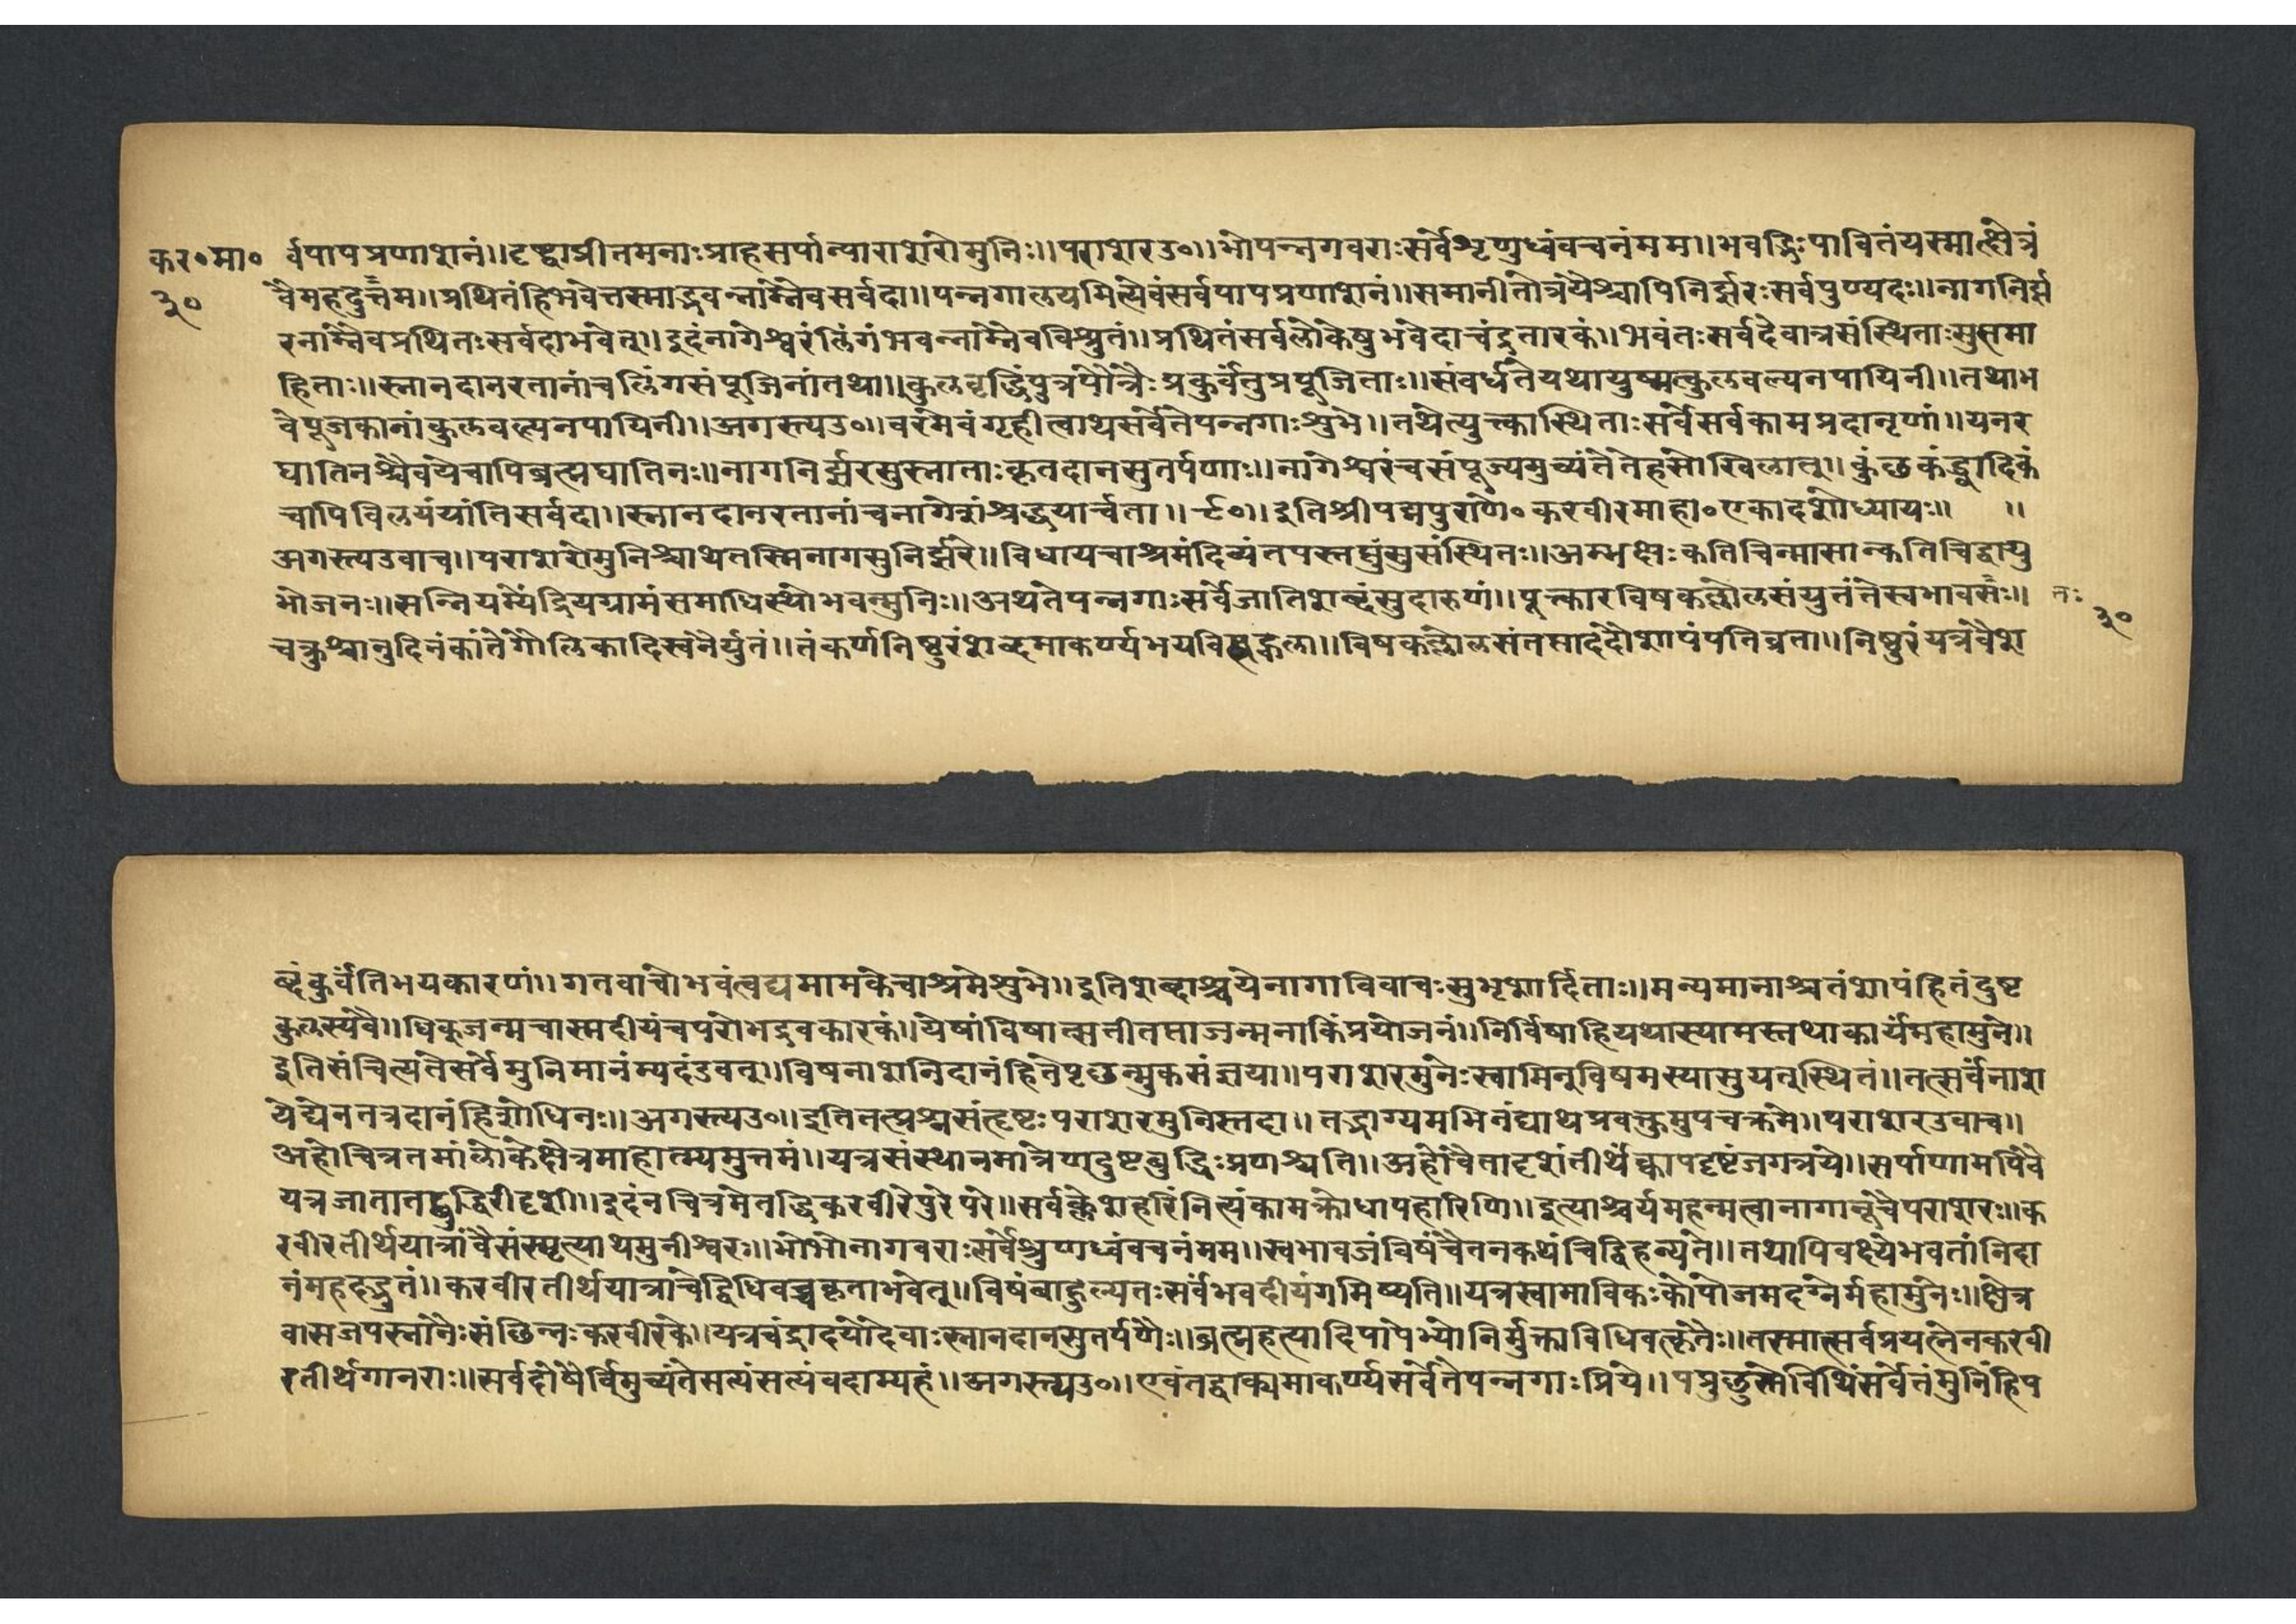 कर०मा० र्वपापप्रणाशनं॥दृष्ट्वाप्रीतमनाःप्राहसर्पान्पाराशरोमुनिः॥पराशरउ०॥भोपन्नगवराःसर्वेशृणुध्वंवचनंमम॥भवद्भिःपावितंयस्मात्क्षेत्रं
३० वैमहदुत्तम॥प्रथितंहिभवेत्तस्माद्भवन्नाम्नैवसर्वदा॥पन्नगालयमित्येवंसर्वपापप्रणाशनं॥समानीतोत्रयैश्चापिनिर्झरःसर्वपुण्यदः॥नागनिर्झ
रनाम्नैवप्रथितःसर्वदाभवेत्॥इदंनागेश्वरंलिंगंभवन्नाम्नैवविश्रुतं॥प्रथितंसर्वलोकेषुभवेदाचंद्रतारकं॥भवंतःसर्वदैवात्रसंस्थिताःसुसमा
हिताः॥स्नानदानरतानांचलिंगसंपूजिनांतथा॥कुलवृद्धिंपुत्रपौत्रैःप्रकुर्वंतुप्रपूजिताः॥संवर्धतेयथायुष्मत्कुलवल्यनपायिनी॥तथाभ
वेपूजकानांकुलवल्यनपायिनी॥अगस्त्यउ०॥वरमेवंगृहीत्वाथसर्वेतेपन्नगाःशुभे॥तथेत्युत्त्कास्थिताःसर्वेसर्वकामप्रदानृणां॥येनर
घातिनश्चैवयेचापिब्रह्मघातिनः॥नागनिर्झरसुस्नाताःकृतदानसुतर्पणाः॥नागेश्वरंचसंपूज्यमुच्यंतेतेहसोखिलात्॥कुंछकंड्वादिकं
चापिविलयंयांतिसर्वदा॥स्नानदानरतानांचनागेशंश्रद्धयार्चता॥९०॥इतिश्रीपद्मपुराणे०करवीरमाहा०एकादशोध्यायः॥ ॥
अगस्त्यउवाच॥पराशरोमुनिश्चाथतस्मिनागसुनिर्झरे॥विधायचाश्रमंदिव्यंतपस्तप्तुंसुसंस्थितः॥अम्भक्षःकतिचिन्मासान्कतिचिद्वायु
भोजनः॥सन्नियम्येंद्रियग्रामंसमाधिस्थोभवन्मुनिः॥अथतेपन्नगाःसर्वेजातिशब्दंसुदारुणं॥पूत्कारविषकल्लोलसंयुतंतेस्वभावसः॥ तः
३०
चक्रुश्चानुदिनंकांतेगोलिकादिस्वनैर्युतं॥तंकर्णनिष्ठुरंशब्दमाकर्ण्यभयविह्वला॥विषकल्लोलसंतप्ताददौशापंपतिव्रता॥निष्ठुरंयत्रवैश
ब्दंकुर्वंतिभयकारणं॥गतवाचोभवंत्वद्यमामकेचाश्रमेशुभे॥इतिशब्दाश्चयेनागाविवाचःसुभृशार्दिताः॥मन्यमानाश्चतंशापंहितंदुष्ट
कुलस्यवै॥धिक्जन्मचास्मदीयंचपरोभद्रवकारकं॥येषांविषात्सतीतप्ताजन्मनाकिंप्रयोजनं॥निर्विषाहियथास्यामस्तथाकार्यंमहामुने॥
इतिसंचिंत्यतेसर्वेमुनिमानंम्यदंडवत्॥विषनाशनिदानंहितेपृछन्मुकसंज्ञया॥पराशरमुनेःस्वामिन्विषमस्यासुयत्स्थितं॥तत्सर्वंनाश
येद्येनतत्रदानंहिशोधिनः॥अगस्त्यउ०॥इतितत्प्रश्नसंत्दृष्टःपराशरमुनिस्तदा॥तद्भाग्यमभिनंद्याथप्रवक्तुमुपचक्रमे॥पराशरउवाच॥
अहोचित्रतमांलोकेक्षेत्रमाहात्म्यमुत्तमं॥यत्रसंस्थानमात्रेणदुष्टबुद्धिःप्रणश्यति॥अहोवैतादृशंतीर्थंक्वापदृष्टंजगत्रये॥सर्पाणामपिवै
यत्रजातातद्बुद्धिरीदृशी॥इदंनचित्रमेतद्धिकरवीरेपुरेपरे॥सर्वक्लेशहरिंनित्यंकामक्रोधापहारिणि॥इत्याश्चर्यमहन्मत्वानागान्चैपराशरः॥क
रवीरतीर्थयात्रांवैसंस्मृत्याथमुनीश्वरः॥भोभोनागवराःसर्वेश्रुणध्वंवचनंमम॥स्वभावजंविषंचैतनकथंचिद्विहन्यते॥तथापिवक्ष्येभवतांनिदा
नंमहहद्भुतं॥करवीरतीर्थयात्राचेद्विधिवच्चकृताभवेत्॥विषंबाहुल्यतःसर्वंभवदीयंगमिष्यति॥यत्रस्वाभाविकःकोपोजमदग्नेर्महामुनेः॥क्षेत्र
वासजपस्नानैःसंछिन्नःकरवीरके॥यत्रचंद्रादयोदेवाःस्नानदानसुतर्पणैः॥ब्रह्महत्यादिपापेभ्योनिर्मुक्ताविधिवत्कृतैः॥तस्मात्सर्वप्रयत्नेनकरवी
रतीर्थगानराः॥सर्वदोषैर्विमुच्यंतेसत्यंसत्यंवदाम्यहं॥अगस्त्यउ०॥एवंतद्वाक्यमाकर्ण्यसर्वेतेपन्नगाःप्रिये॥पप्रुछुस्तेविधिंसर्वेतंमुनिंहिप